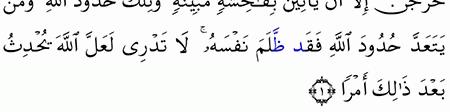 خۡرُجۡنَ إِلَّآ أَن يَأۡتِينَ بِفَٰحِشَةٖ مُّبَيِّنَةٖۚ وَتِلۡكَ حُدُودُ ٱللَّهِۚ وَمَن
يَتَعَدَّ حُدُودَ ٱللَّهِ فَقَدۡ ظَلَمَ نَفۡسَهُۥۚ لَا تَدۡرِي لَعَلَّ ٱللَّهَ يُحۡدِثُ
بَعۡدَ ذَٰلِكَ أَمۡرٗا ١